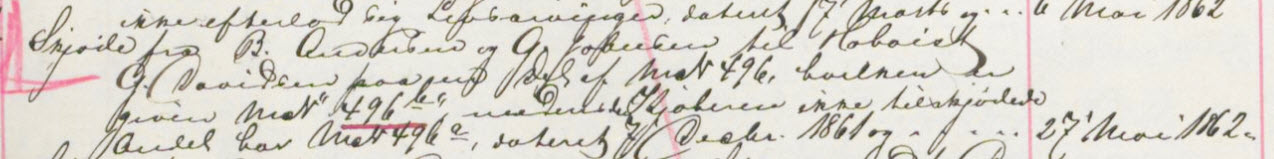 ikke efterlod sig Livsarvinger, dateret 17 Marts og . . 6 Mai 1862
Skjøde fra B. Andersen og G. Jobusen til Hoboist
G. Davidsen paa en Del af Mat No 496, hvilken er
given Mat No "496 b" medens den Kjøberen ikke tilskjødede
Andel har Mat No 496 a, dateret 7 Decbr. 1861 og . . . . 27 Mai 1862